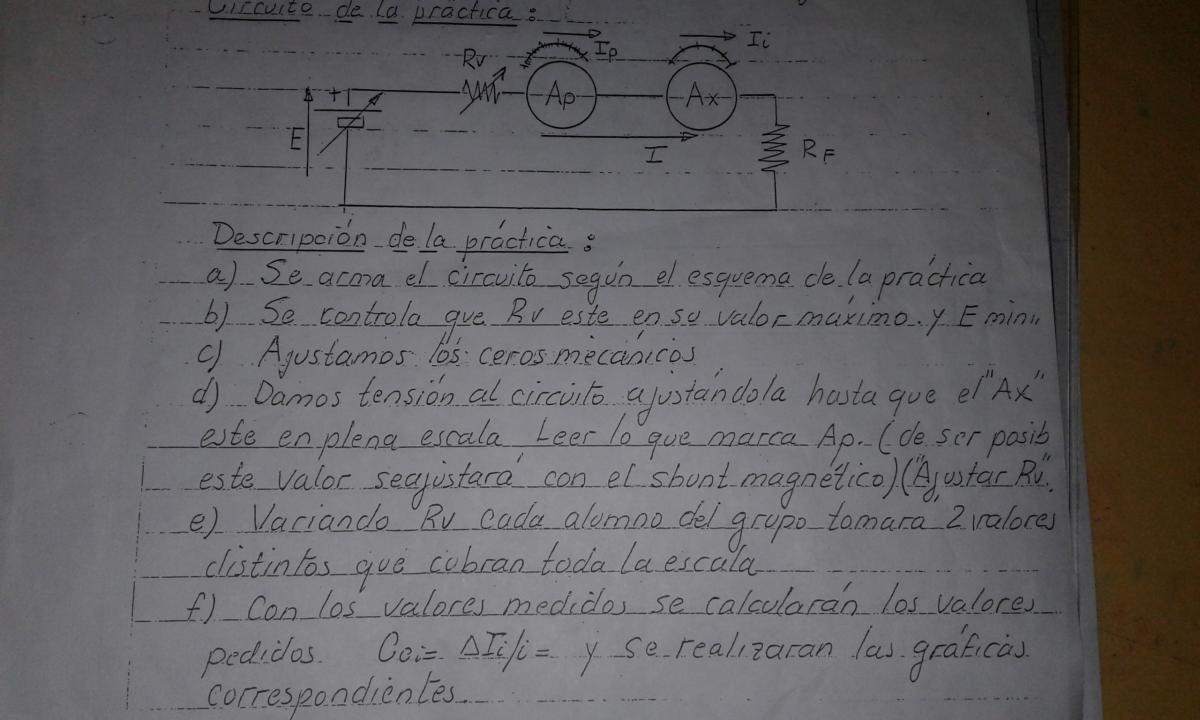 Circuito de la práctica :
Rv
Ip
Ii
+
Ap
Ax
E
I
RF
Descripción de la práctica :
a) Se arma el circuito según el esquema de la práctica
b) Se controla que Rv este en su valor máximo y E mini
c) Ajustamos los ceros mecánicos
d) Damos tensión al circuito ajustándola hasta que el "Ax"
este en plena escala Leer lo que marca Ap. (de ser posib
este valor seajustará con el shunt magnético) ("Ajustar Rv".
e) Variando Rv cada alumno del grupo tomara 2 valores
distintos que cubran toda la escala
f) Con los valores medidos se calcularán los valores
pedidos. Cci= ΔIi/i= y se realizaran las gráficas
correspondientes.